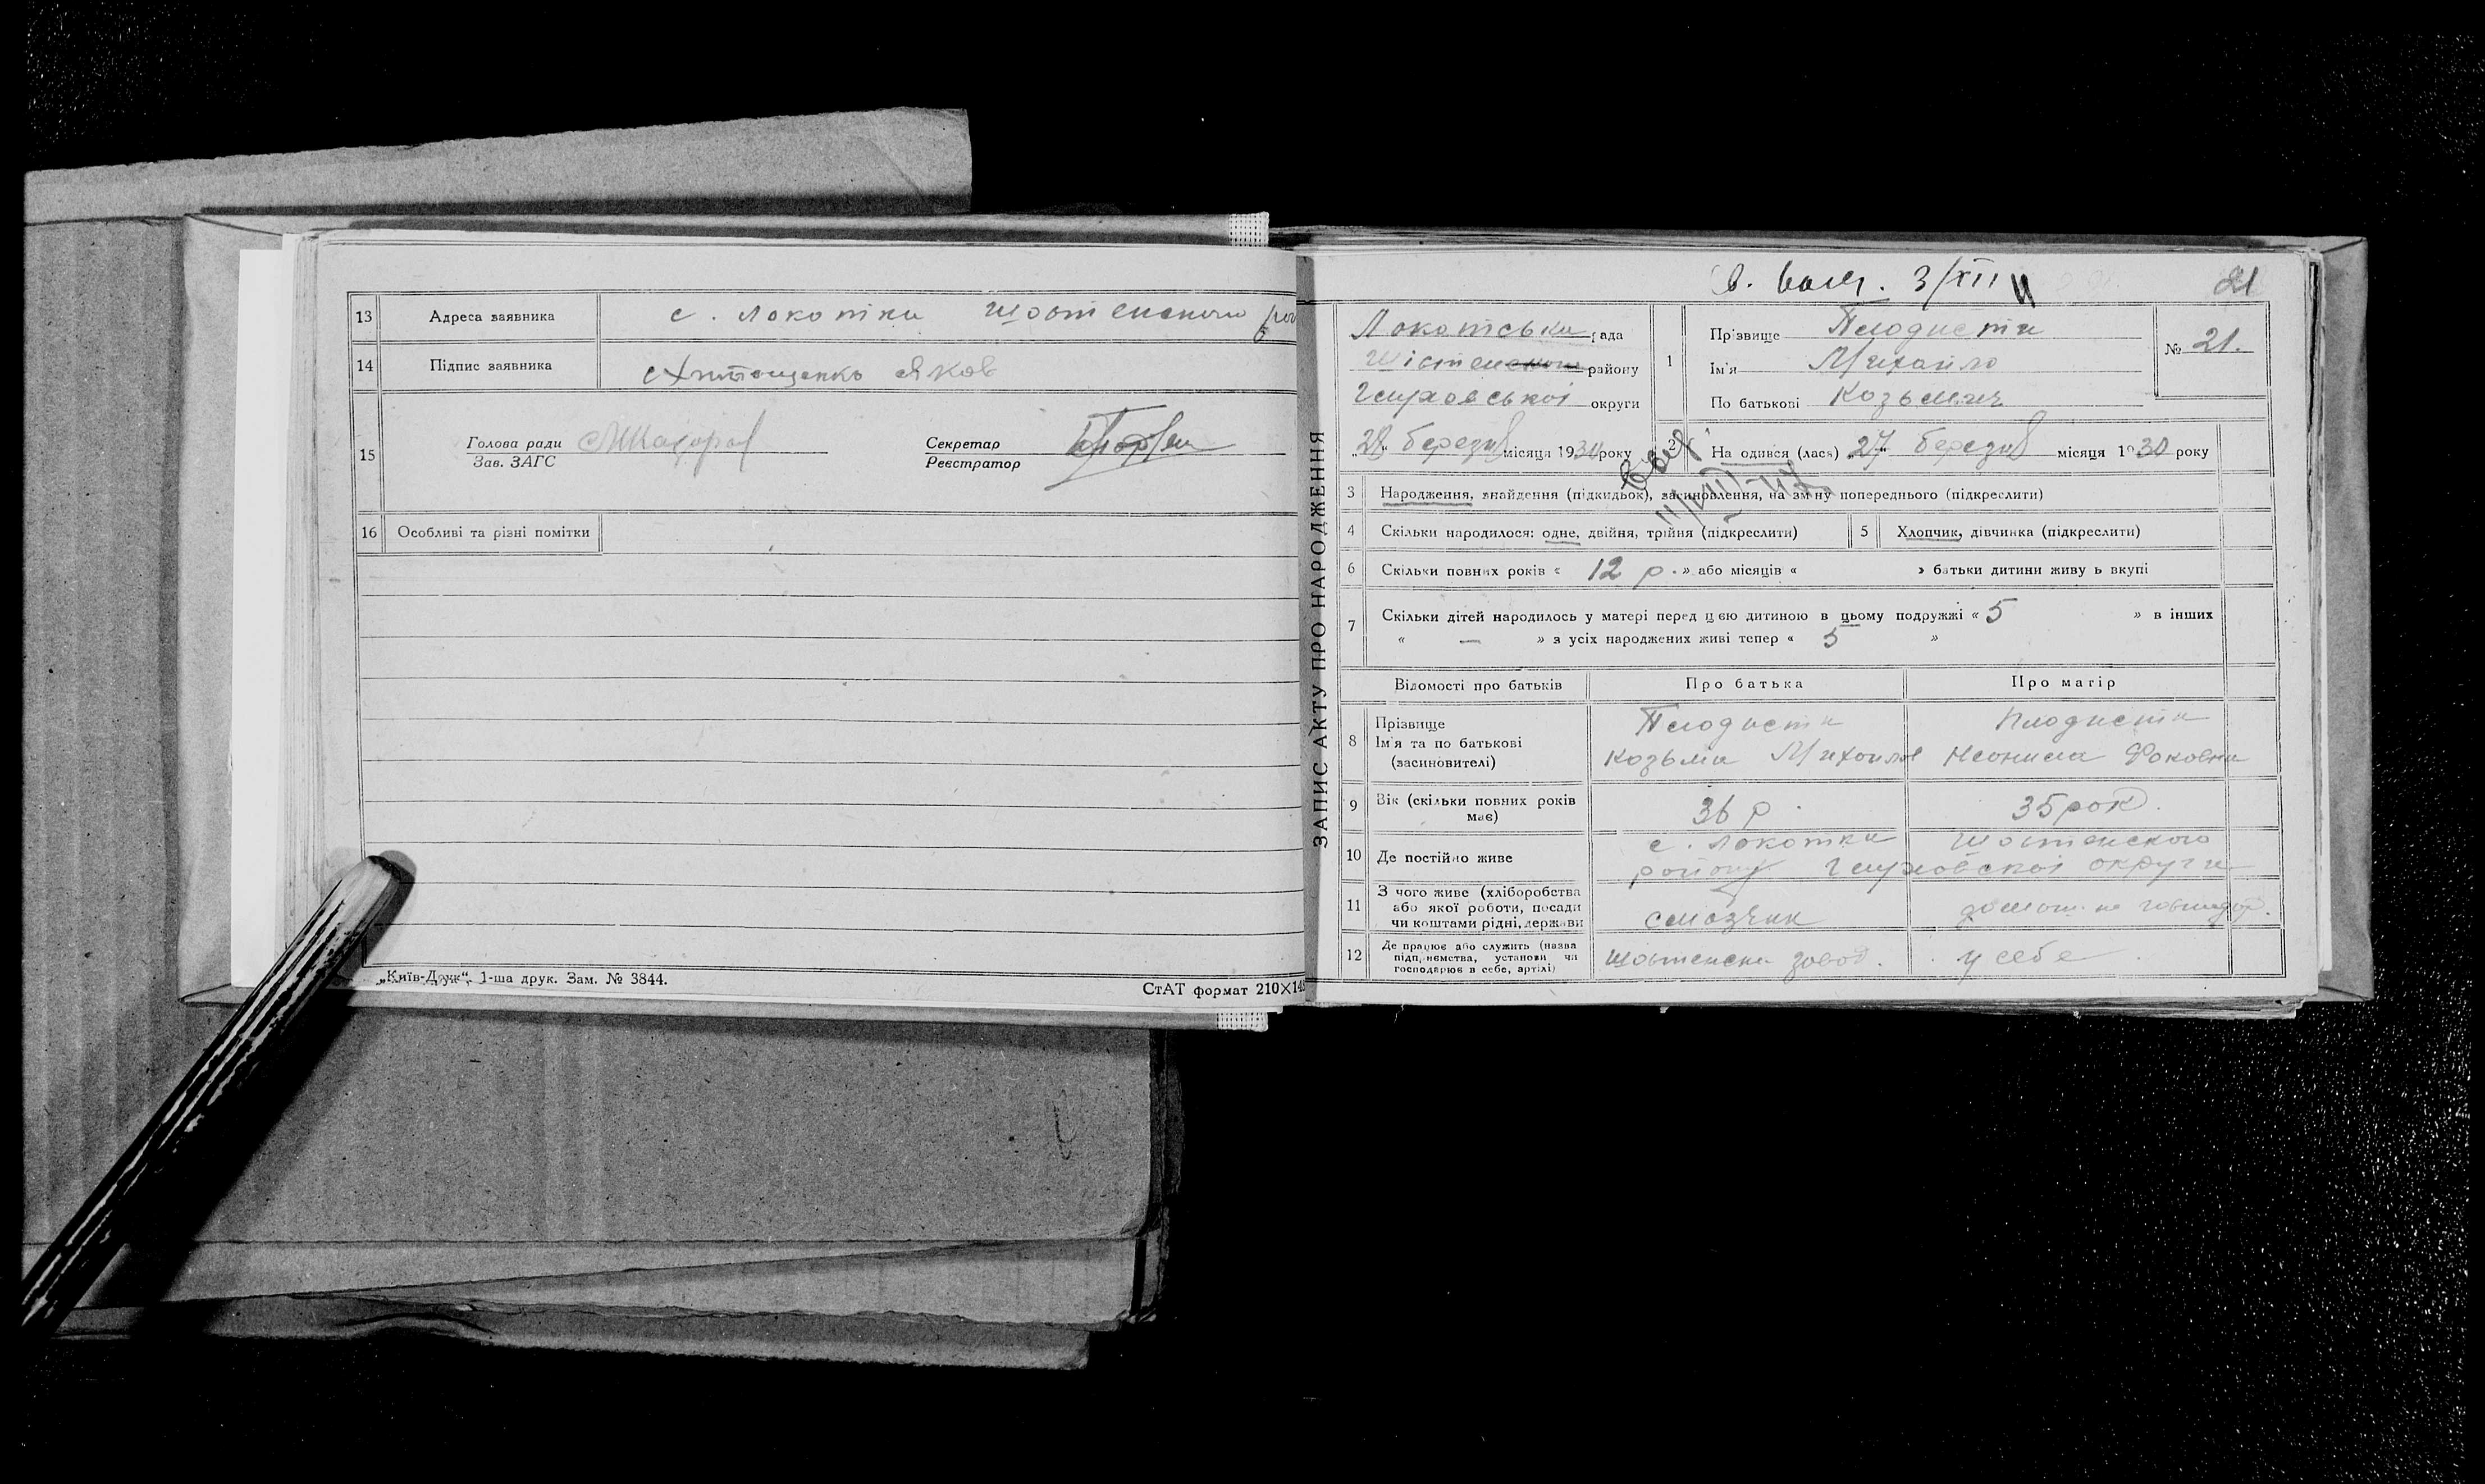 13 Адреса заявника с. Локотки Шостенского
14 Підпис заявника Яков
15 Голова ради
Зав. ЗАГС
Секретар
Реєстратор
16 Особливі та різні помітки
„Київ-Друк“, 1-ша друк. Зам. № 3844.
СтАТ формат 210×148
ЗАПИС АКТУ ПРО НАРОДЖЕННЯ
3/XII
21
Локотська рада
району
округи
„28“ березня місяця 1930 року
1 Прізвище
Ім'я Михайло
По батькові Козьмич
№ 21.
2 На одився (лася) „27“ березня місяця 1930 року
3 Народження, знайдення (підкидьок), засиновлення, на зміну попереднього (підкреслити)
4 Скільки народилося: одне, двійня, трійня (підкреслити)
5 Хлопчик, дівчинка (підкреслити)
6 Скільки повних років « 12 р. » або місяців « » батьки дитини живу ь вкупі
7 Скільки дітей народилось у матері перед цією дитиною в цьому подружжі « 5 » в інших
« — » з усіх народжених живі тепер « 5 »
Відомості про батьків Про батька Про матір
8 Прізвище
Ім'я та по батькові Козьма Михайлов Неонила Фоковна
(засиновителі)
9 Вік (скільки повних років має) 36 р. 35 рок.
10 Де постійно живе с. Локотки Шостенского
району Глуховскоі округи
11 З чого живе (хліборобства
або якої роботи, посади
чи коштами рідні, держави
смазчик
12 Де працює або служить (назва
підприємства, установи чи
господарює в себе, артілі)
завод. у себе